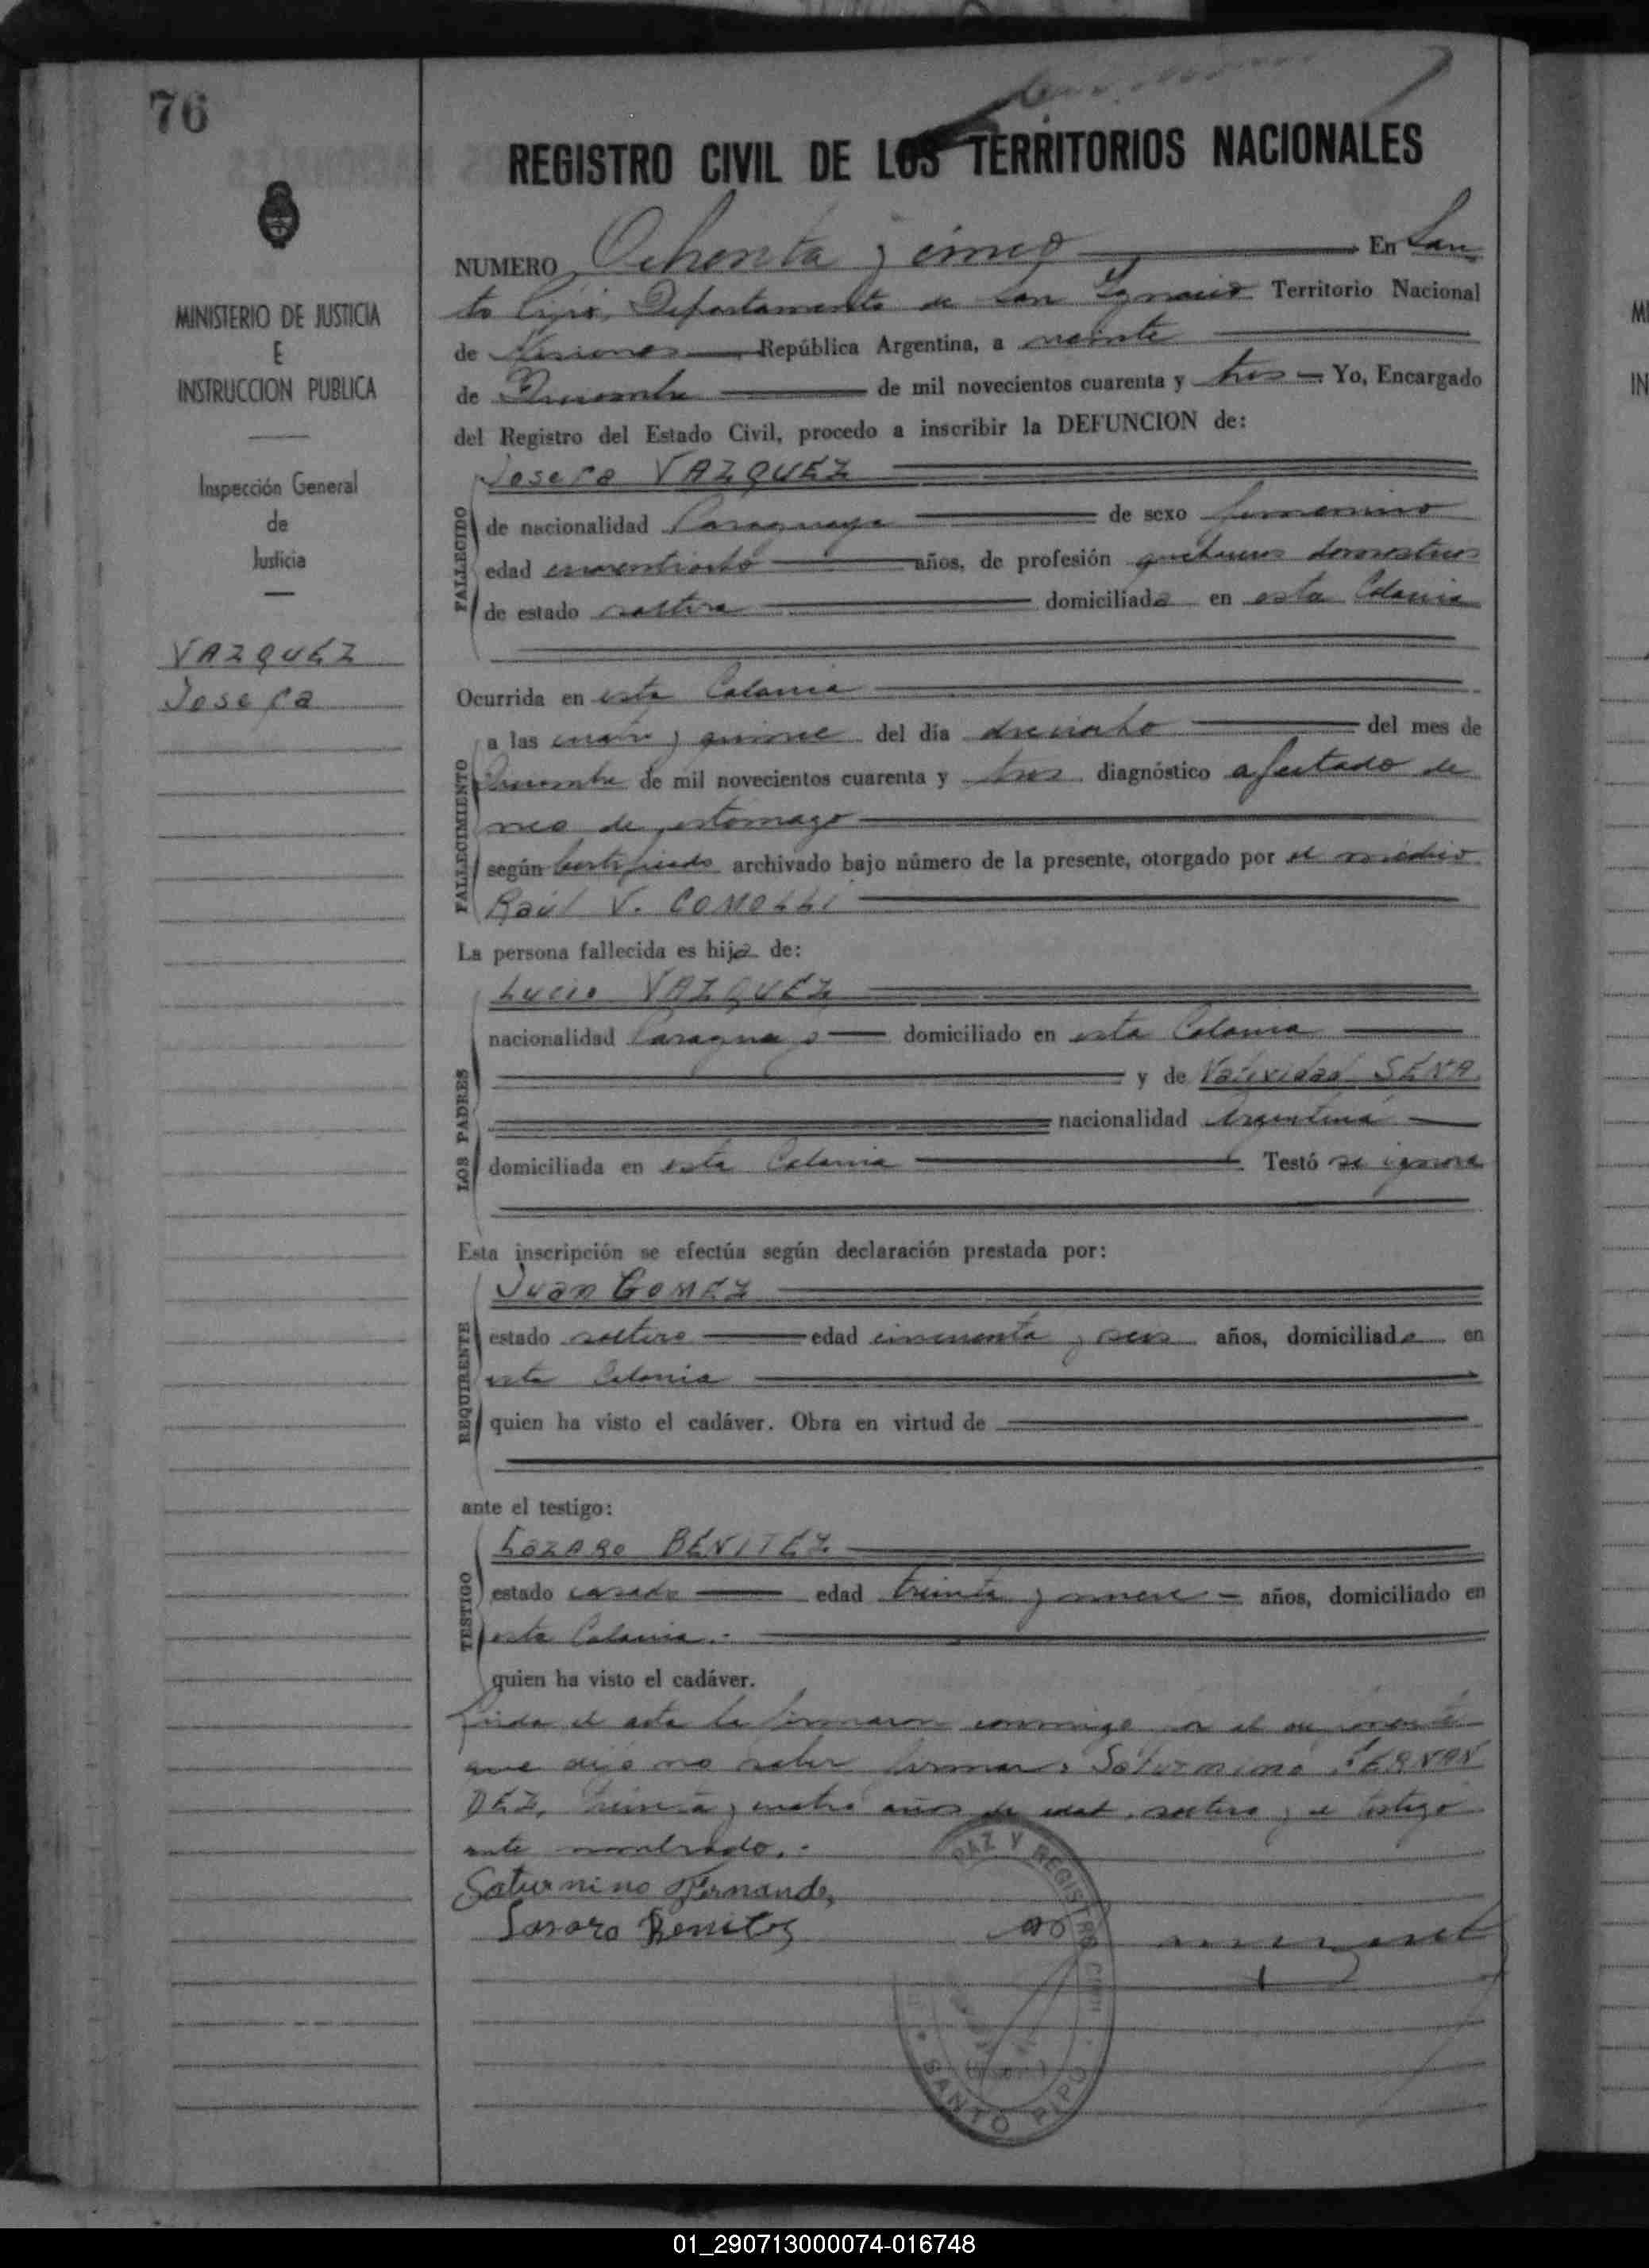 76
MINISTERIO DE JUSTICIA
E
INSTRUCCION PUBLICA
Inspección General
de
Justicia
VAZQUEZ
Josefa
REGISTRO CIVIL DE LOS TERRITORIOS NACIONALES
NUMERO Ochenta y cinco En San
to Pipó, Departamento de San Ignacio Territorio Nacional
de Misiones República Argentina, a veinte
de Diciembre de mil novecientos cuarenta y tres Yo, Encargado
del Registro del Estado Civil, procedo a inscribir la DEFUNCION de:
Josefa VAZQUEZ
FALLECIDO
de nacionalidad Paraguaya de sexo femenino
edad años, de profesión quehaceres domesticos
de estado soltera domiciliada en esta Colonia
Ocurrida en esta Colonia
FALLECIMIENTO
a las cuatro y quince del día dieciocho del mes de
Diciembre de mil novecientos cuarenta y tres diagnóstico afectado de
de estomago
según certificado archivado bajo número de la presente, otorgado por el médico
Raúl V. COMOLLI
La persona fallecida es hija de:
LOS PADRES
Lucio VAZQUEZ
nacionalidad Paraguayo domiciliado en esta Colonia
y de Natividad SENA
nacionalidad Argentina
domiciliada en esta Colonia Testó se ignora
Esta inscripción se efectúa según declaración prestada por:
REQUIRENTE
Juan GOMEZ
estado soltero edad cincuenta y seis años, domiciliado en
esta Colonia
quien ha visto el cadáver. Obra en virtud de
ante el testigo:
TESTIGO
Lazaro BENITEZ
estado casado edad treinta y nueve años, domiciliado en
esta Colonia.-
quien ha visto el cadáver.
Leida el acta la firmaron conmigo por el exponente
que dijo no saber firmar: Saturnino FERNAN
DEZ, treinta y cuatro años de edad, soltero y el testigo
ante nombrado.-
Saturnino Fernandez
Lasaro Benitez
PAZ Y REGISTRO CIVIL
SANTO PIPO
01_290713000074-016748